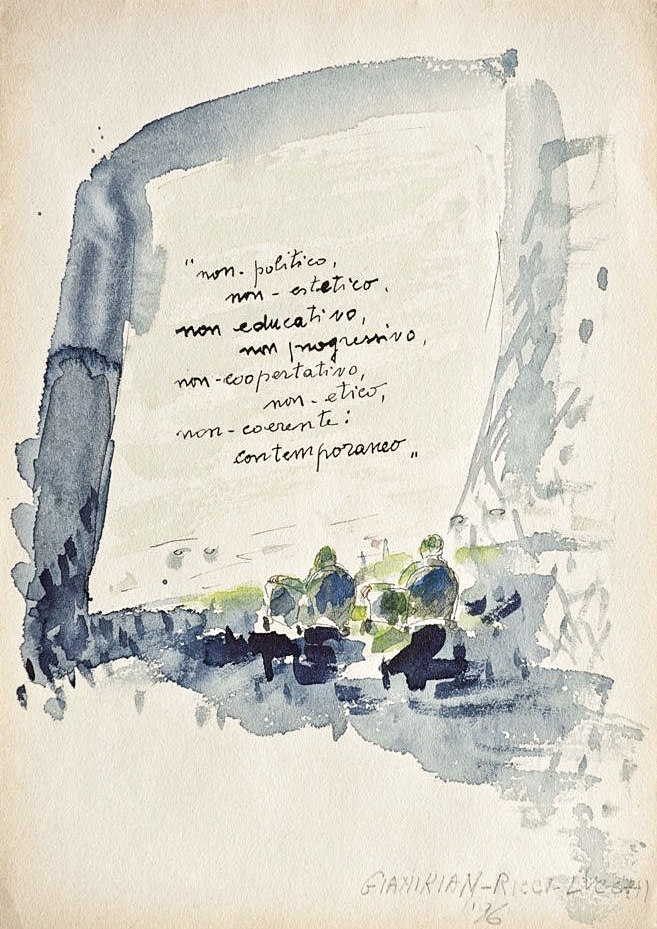 "non-politico,
non-estetico.
non educativo,
non progressivo,
non-coopertativo,
non-etico,
non-coerente:
contemporaneo"
GIANIKIAN-RICCI-LUCCHI
'76